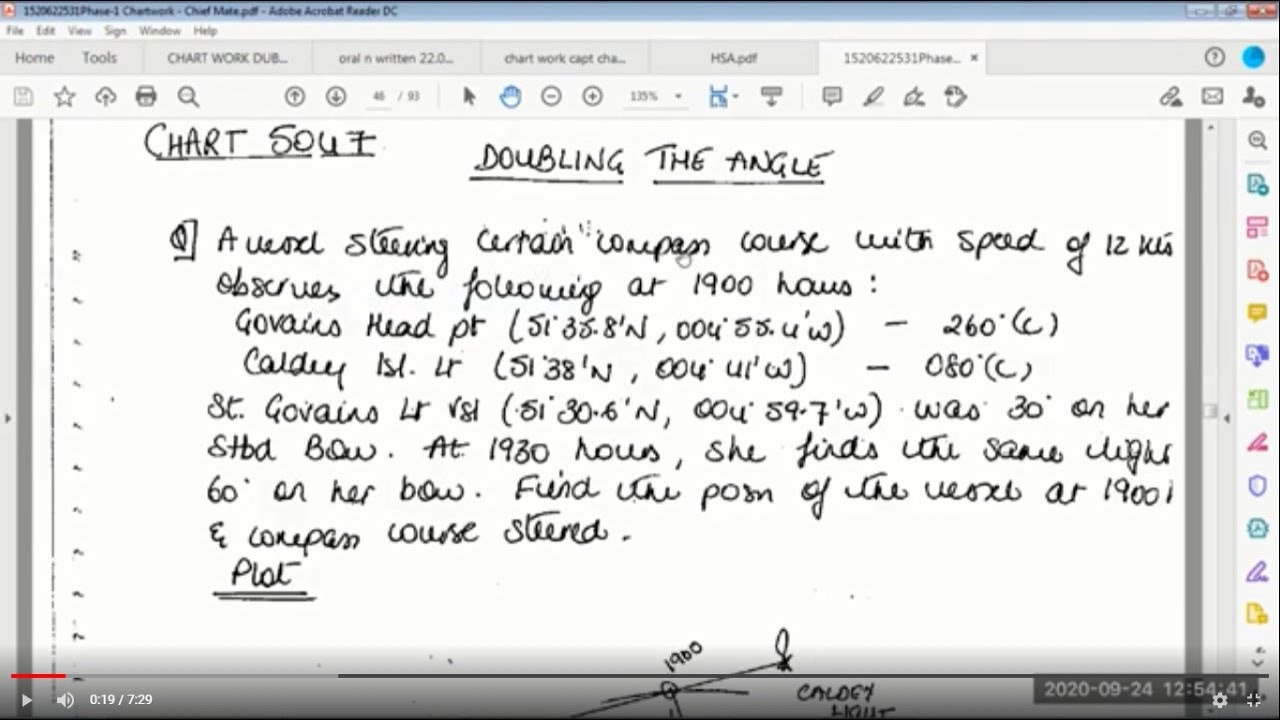 1520622531Phase-1 Chartwork - Chief Mate.pdf - Adobe Acrobat Reader DC
File Edit View Sign Window Help
Home Tools CHART WORK DUB... oral n written 22.0... chart work capt cha... HSA.pdf 1520622531Phase... ×
46 / 93 135%
CHART 5047
DOUBLING THE ANGLE
Q] A vessel steering certain compass course with speed of 12 kts
observes the following at 1900 hours :
Govains Head pt (51°35.8'N, 004°55.4'W) - 260°(C)
Caldey Isl. Lt (51°38'N, 004°41'W) - 080°(C)
St. Govains Lt Vsl (51°30.6'N, 004°59.7'W) was 30° on her
Stbd Bow. At 1930 hours, she finds the same light
60° on her bow. Find the posn of the vessel at 1900
& compass course steered.
Plot
1900
CALDEY
LIGHT
0:19 / 7:29
2020-09-24 12:54:41